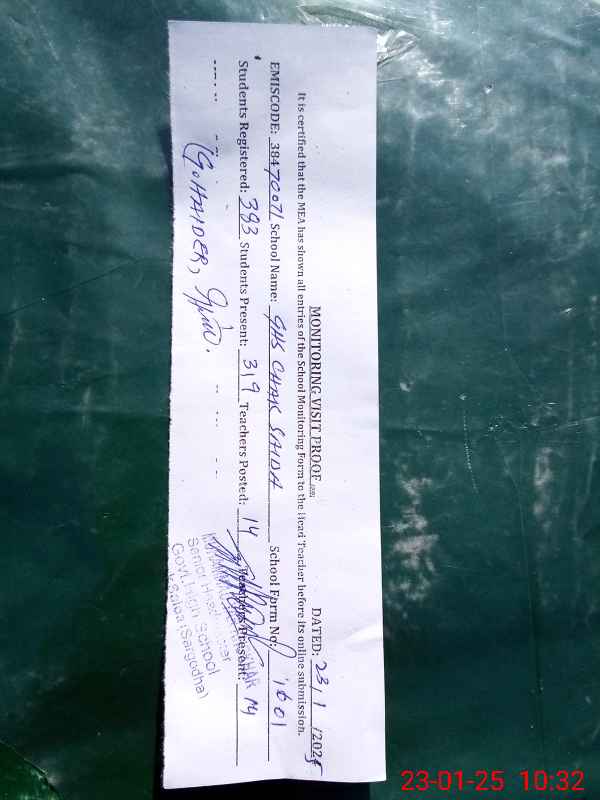 MONITORING VISIT PROOF
DATED: 23/1/2025
It is certified that the MEA has shown all entries of the School Monitoring Form to the Head Teacher before its online submission.
EMISCODE: 38470071 School Name: GHS CHAK SAIDA School Form No: 1601
Students Registered: 393 Students Present: 319 Teachers Posted: 14 Teachers Present: 14
(G. HAIDER,
Senior Headmaster
Govt. High School
(Sargodha)
23-01-25 10:32